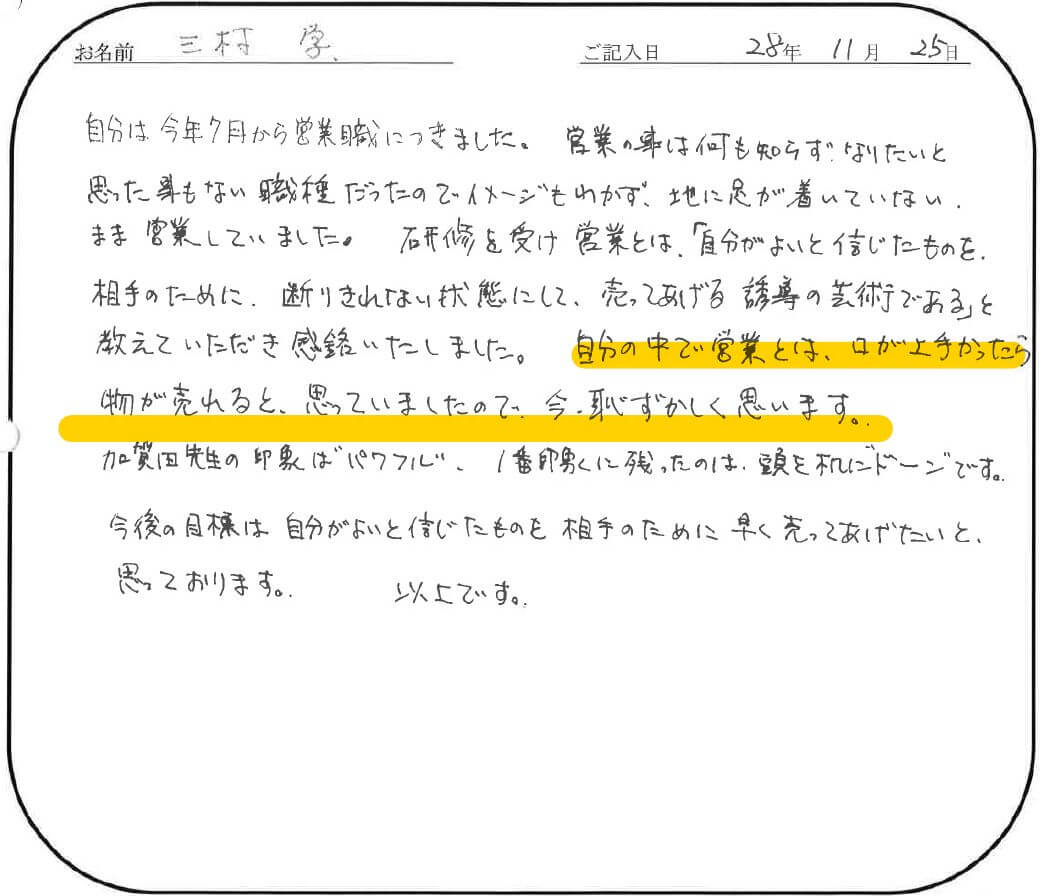 お名前 三村 学 ご記入日 28年 11月 25日
自分は今年7月から営業職につきました。 営業の事は何も知らず、なりたいと
思った事もない職種だったのでイメージもわかず、地に足が着いていない
まま営業していました。 研修を受け営業とは、「自分がよいと信じたものを、
相手のために、断りきれない状態にして、売ってあげる誘導の芸術である」と
教えていただき感銘いたしました。 自分の中で営業とは、口が上手かったら
物が売れると、思っていましたので、今、恥ずかしく思います。
加賀田先生の印象は"パワフル"、1番印象に残ったのは、頭を机にドーンです。
今後の目標は自分がよいと信じたものを相手のために早く売ってあげたいと、
思っております。 以上です。